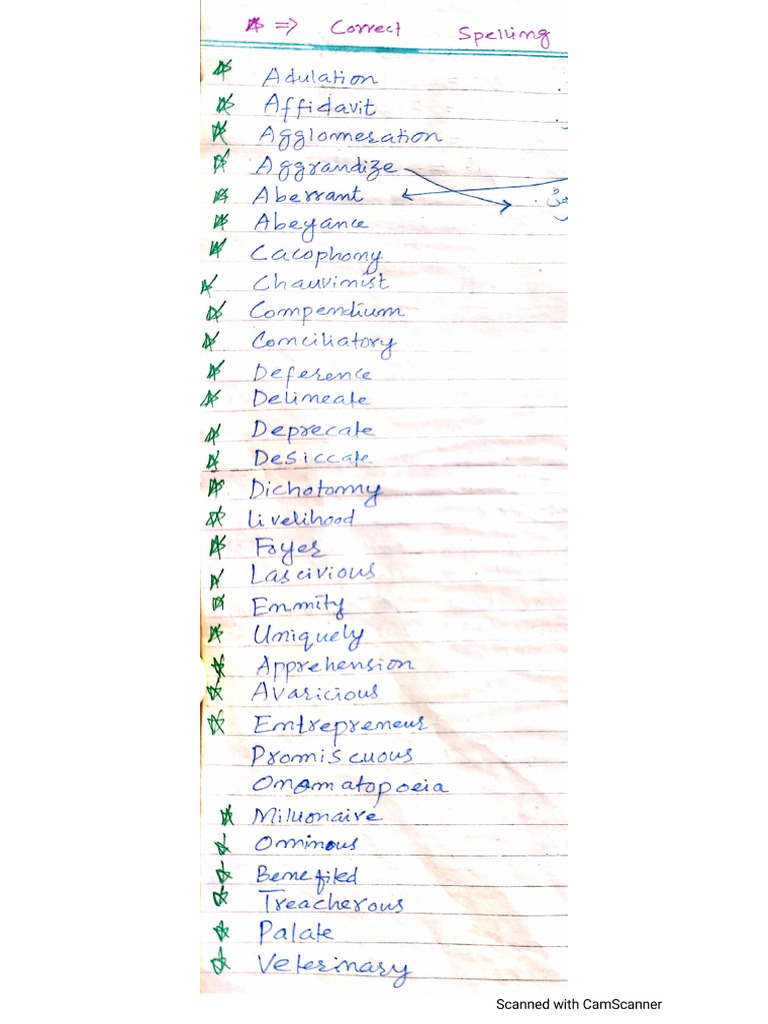 ⇒ Correct Spelling
Adulation
Affidavit
Agglomeration
Aggrandize
Aberrant
Abeyance
Cacophony
Chauvinist
Compendium
Conciliatory
Deference
Delineate
Deprecate
Desiccate
Dichotomy
Livelihood
Foyer
Lascivious
Enmity
Uniquely
Apprehension
Avaricious
Entrepreneur
Promiscuous
Onomatopoeia
Millionaire
Ominous
Benefited
Treacherous
Palate
Veterinary
Scanned with CamScanner